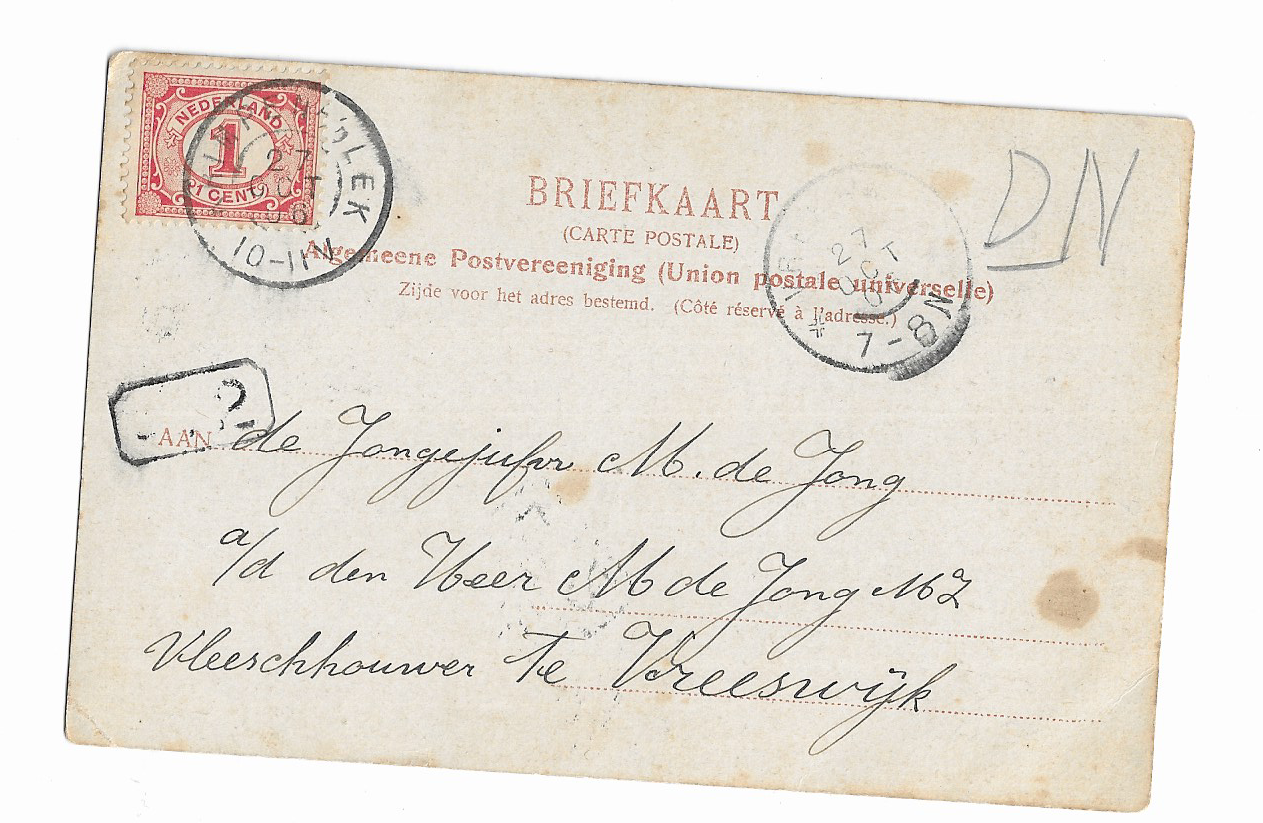 NEDERLAND
1
1 CENT
27
OCT
10-11V
DN
BRIEFKAART
(CARTE POSTALE)
Algemeene Postvereeniging (Union postale universelle)
Zijde voor het adres bestemd. (Côté réservé à l'adresse.)
27
OCT
7-8N
AAN de Jongejufvr M. de Jong
a/d den Heer M de Jong MZ
Vleeschhouwer te Vreeswijk